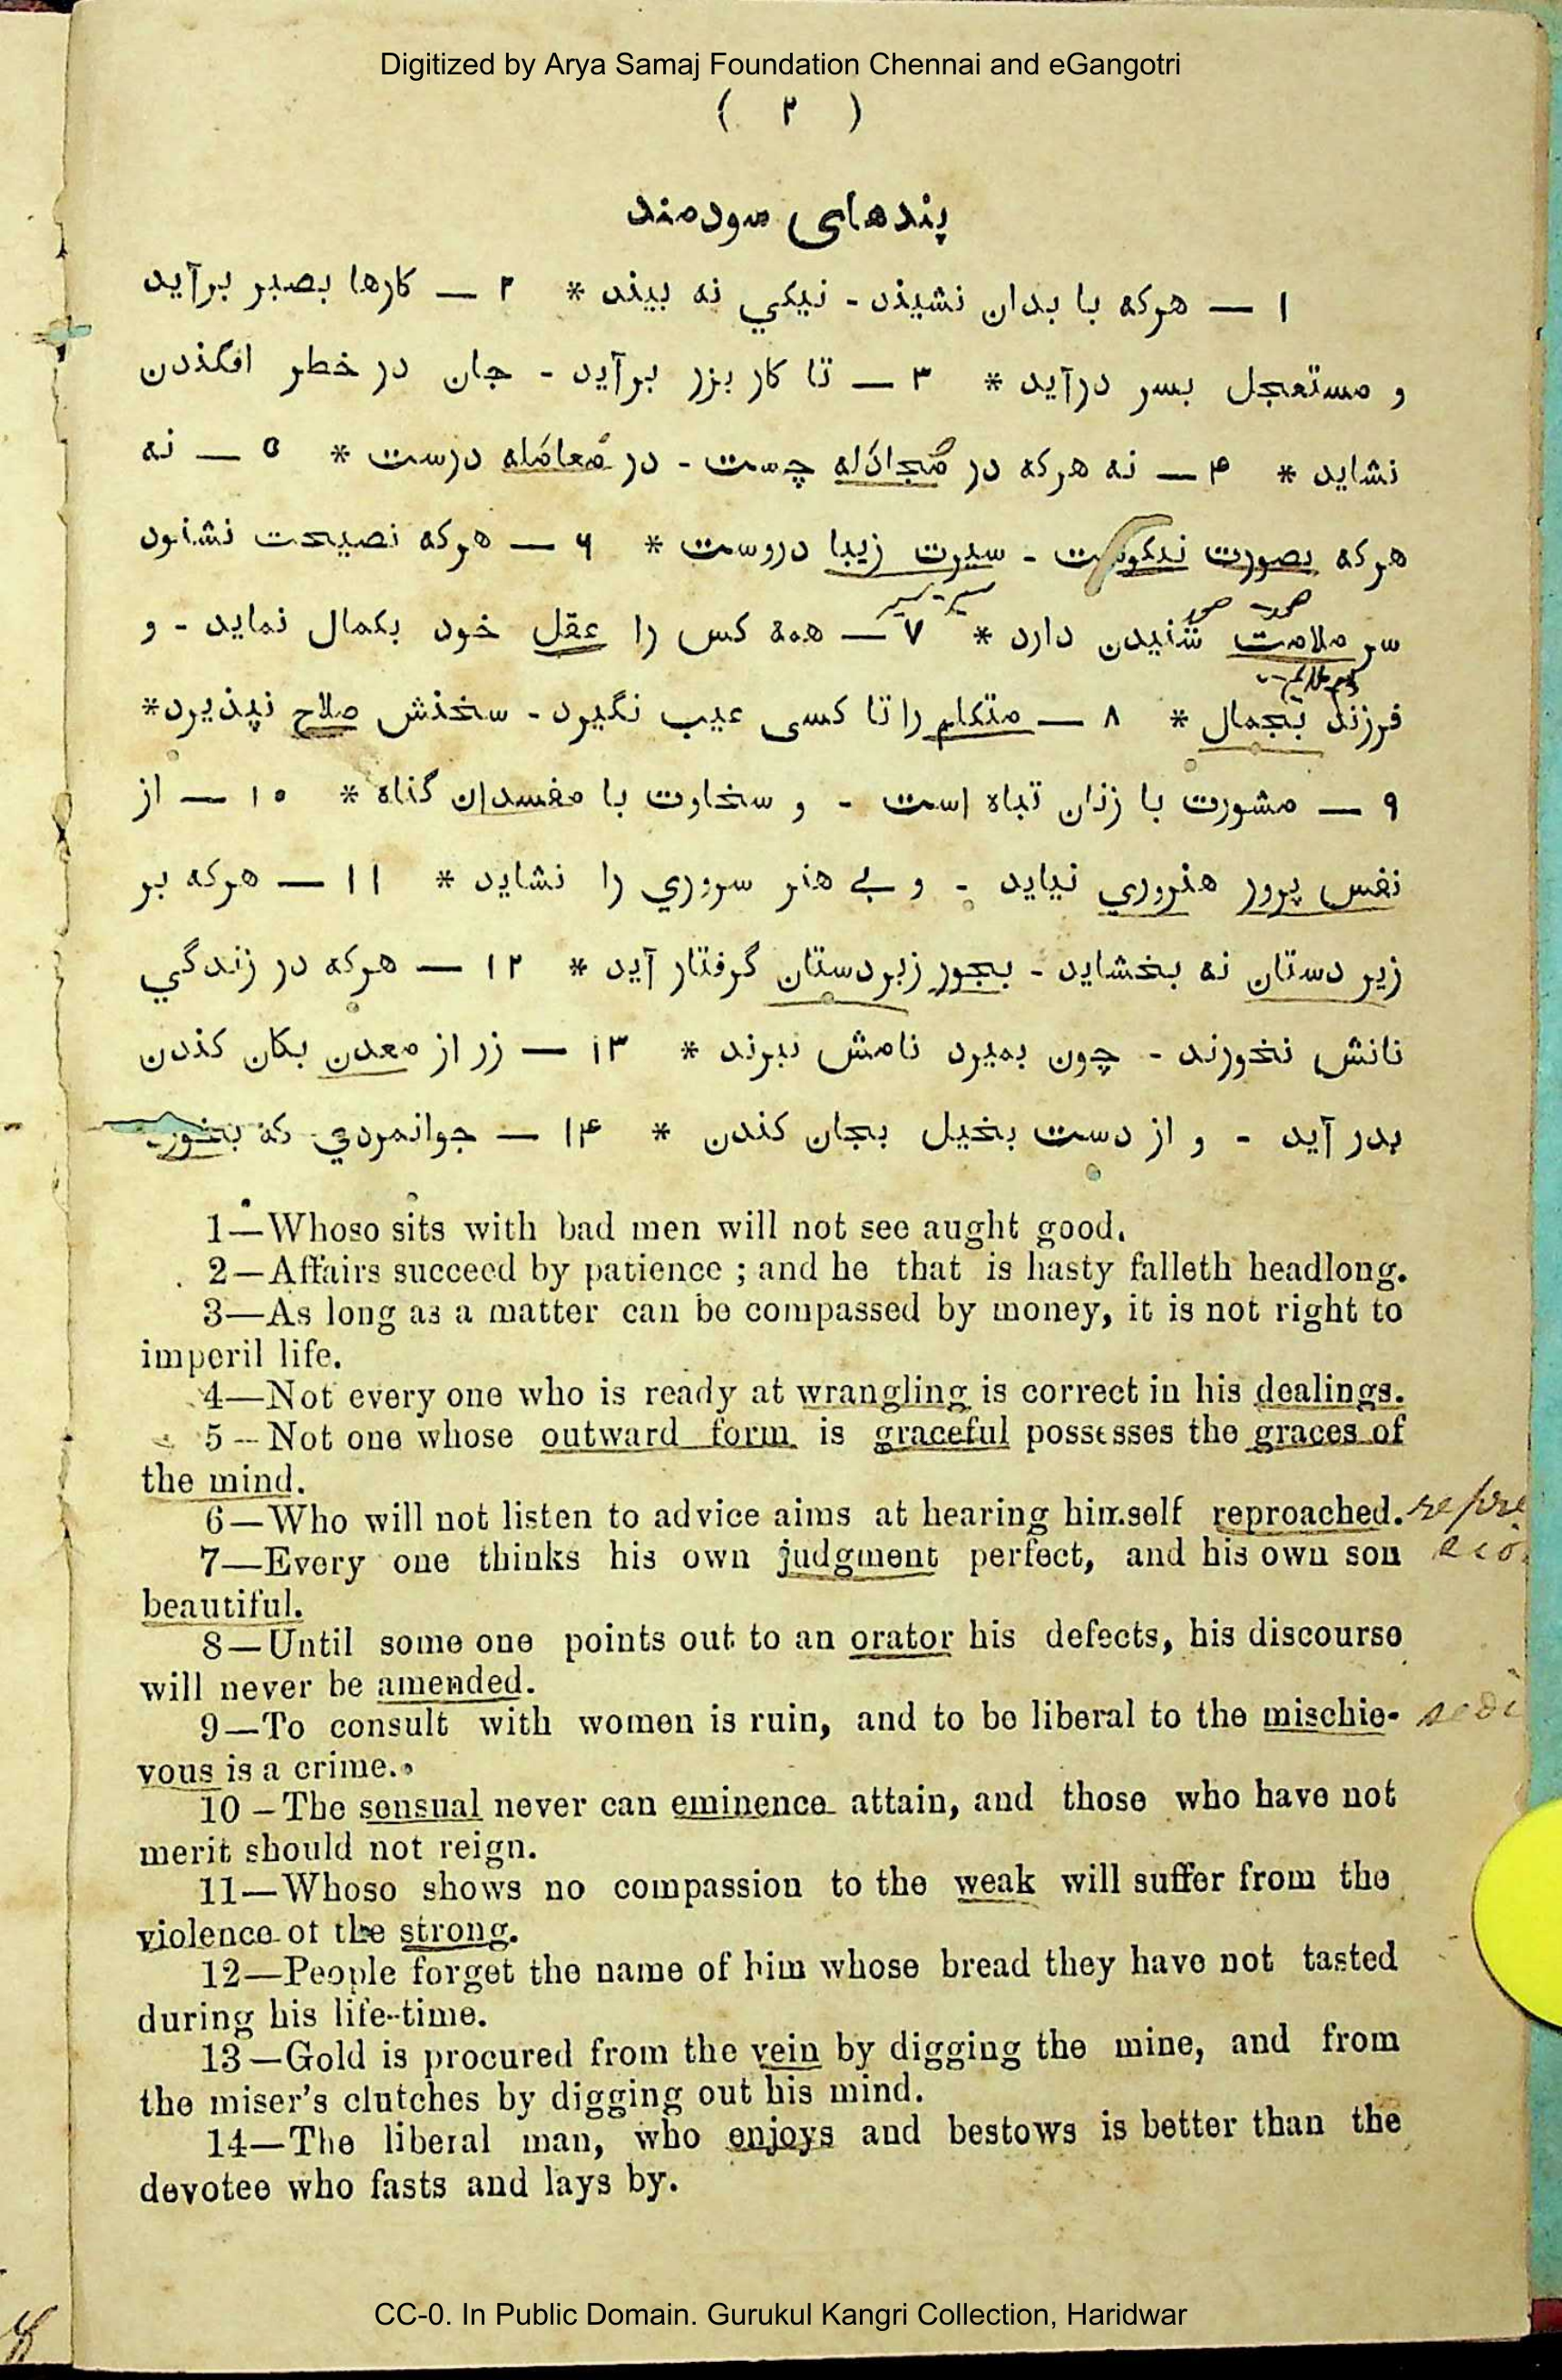 Digitized by Arya Samaj Foundation Chennai and eGangotri
( ۲ )
پندهای سودمند
۱ — هرکه با بدان نشیند - نیکي نه بیند * ۲ — کارها بصبر برآید
و مستعجل بسر درآید * ۳ — تا کار بزر برآید - جان در خطر افگندن
نشاید * ۴ — نه هرکه در مُجادَله چست - در مُعامَله درست * ۵ — نه
هرکه بصورت نیکوست - سیرت زیبا دروست * ۶ — هرکه نصیحت نشنود
سر ملامت شنیدن دارد * ۷ — همه کس را عقل خود بکمال نماید - و
فرزند بجمال * ۸ — متکلم را تا کسی عیب نگیرد - سخنش صلاح نپذیرد *
۹ — مشورت با زنان تباه است - و سخاوت با مفسدان گناه * ۱۰ — از
نفس پرور هنروري نیاید - و بے هنر سروري را نشاید * ۱۱ — هرکه بر
زیر دستان نه بخشاید - بجور زبردستان گرفتار آید * ۱۲ — هرکه در زندگي
نانش نخورند - چون بمیرد نامش نبرند * ۱۳ — زر از معدن بکان کندن
بدر آید - و از دست بخیل بجان کندن * ۱۴ — جوانمردي که بخورد
1—Whoso sits with bad men will not see aught good.
2—Affairs succeed by patience ; and he that is hasty falleth headlong.
3—As long as a matter can be compassed by money, it is not right to
imperil life.
4—Not every one who is ready at wrangling is correct in his dealings.
5—Not one whose outward form is graceful possesses the graces of
the mind.
6—Who will not listen to advice aims at hearing himself reproached.
7—Every one thinks his own judgment perfect, and his own son
beautiful.
8—Until some one points out to an orator his defects, his discourse
will never be amended.
9—To consult with women is ruin, and to be liberal to the mischie-
vous is a crime.
10—The sensual never can eminence attain, and those who have not
merit should not reign.
11—Whoso shows no compassion to the weak will suffer from the
violence of the strong.
12—People forget the name of him whose bread they have not tasted
during his life-time.
13—Gold is procured from the vein by digging the mine, and from
the miser's clutches by digging out his mind.
14—The liberal man, who enjoys and bestows is better than the
devotee who fasts and lays by.
CC-0. In Public Domain. Gurukul Kangri Collection, Haridwar